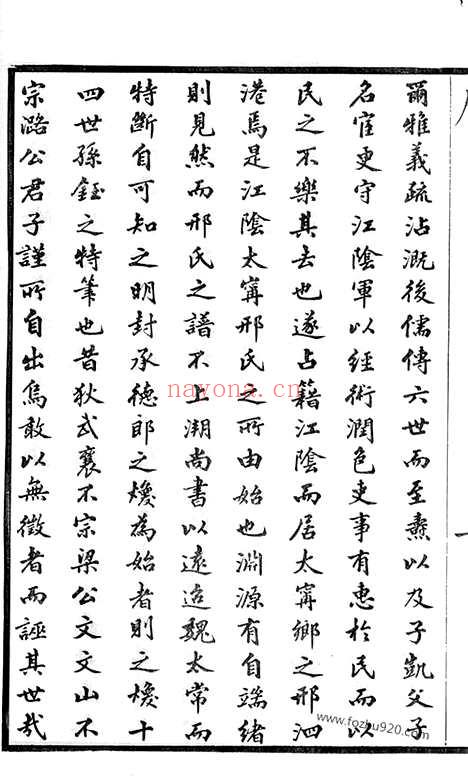 爾雅義疏沾溉後儒傳六世而至燾以及子凱父子
名宦更守江陰軍以經術潤色吏事有惠於民而以
民之不樂其去也遂占籍江陰而居太甯鄉之邢泗
港焉是江陰太甯邢氏之所由始也淵源有自端緒
則見然而邢氏之譜不上溯尚書以遠迨魏太常而
特斷自可知之明封承德郎之煥為始者則之煥十
四世孫鈺之特筆也昔狄武襄不宗梁公文文山不
宗潞公君子謹所自出焉敢以無徵者而誣其世哉
nayona.cn
www.fozhu920.com